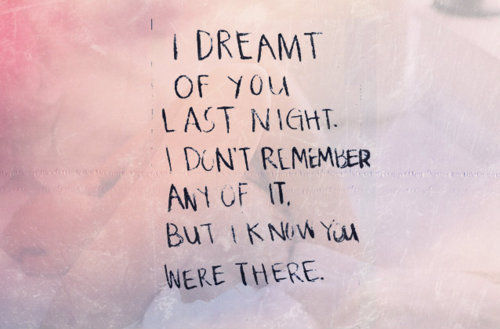 I DREAMT
OF YOU
LAST NIGHT.
I DON'T REMEMBER
ANY OF IT,
BUT I KNOW YOU
WERE THERE.